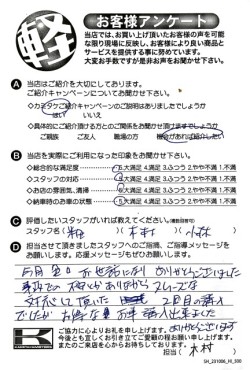 軽
お客様アンケート
当店では、お買い上げ頂いたお客様の声を可能
な限り現場に反映し、お客様により良い商品と
サービスを提供する事に努めています。
大変お手数ですが是非お声をお聞かせ下さい。
A 当店はご紹介を大切にしております。
ご紹介キャンペーンについてお聞かせ下さい。
◇カミタケご紹介キャンペーンのご説明はありましたでしょうか
はい いいえ
◇具体的にご紹介頂ける方とのご関係をお聞かせ頂けますでしょうか
ご親族 ご友人 職場の方
B 当店を実際にご利用になった印象をお聞かせ下さい。
◇総合的な満足度 5.大満足 4.満足 3.ふつう 2.やや不満 1.不満
◇スタッフの対応 5.大満足 4.満足 3.ふつう 2.やや不満 1.不満
◇お店の雰囲気、清掃 5.大満足 4.満足 3.ふつう 2.やや不満 1.不満
◇納車時のお車の状態 5.大満足 4.満足 3.ふつう 2.やや不満 1.不満
C 評価したいスタッフがいれば教えてください。(複数回答可)
スタッフ名( ) ( 木村 ) ( 小林 )
D 担当させて頂きましたスタッフへのご指摘、ご指導メッセージを
お願いします。応援メッセージもぜひお願いします。
ありがとうございました
スムーズな
対応して頂いた 2度目の購入
でしたが お得な車 購入出来ました
ありがとうございます
ご協力に心よりお礼を申し上げます。
今後とも宜しくお引き立てご愛顧の程お願い申し上げます。
またのご来店を心からお待ちしております。
担当( 木村 )